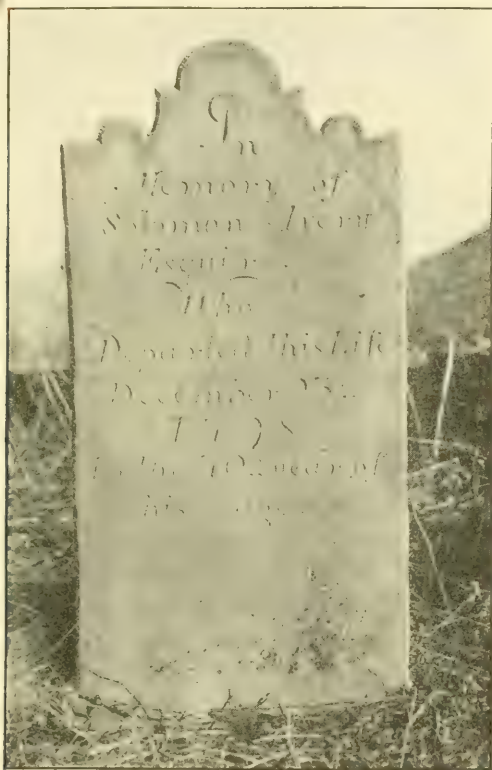 In
Memory of
Solomon Avery
Esquir
Who
Departed This Life
December
1798
In the Year of
his Age